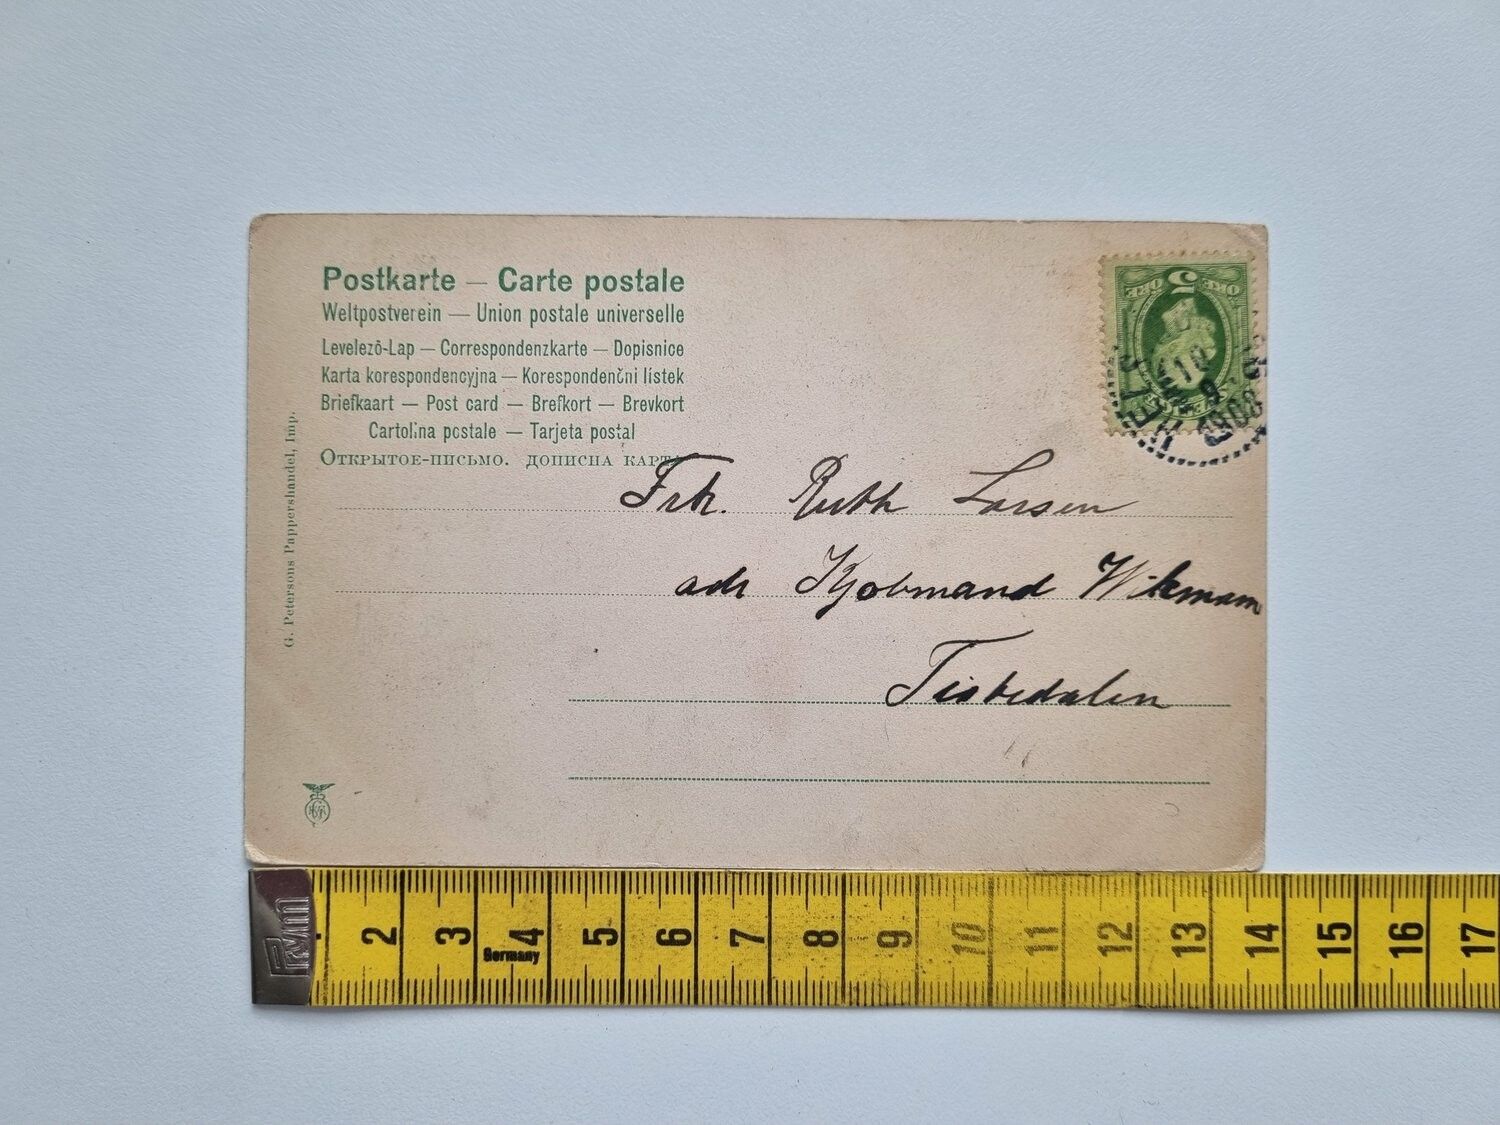 Postkarte — Carte postale
Weltpostverein — Union postale universelle
Levelező-Lap — Correspondenzkarte — Dopisnice
Karta korespondencyjna — Korespondenčni lístek
Briefkaart — Post card — Brefkort — Brevkort
Cartolina postale — Tarjeta postal
Открытое-письмо. дописна карта
G. Petersons Pappershandel, Imp.
5
ÖRE ÖRE
10
9
1908
Frk. Ruth Larsen
adr Kjøbmand Wikmann
Tistedalen
Prym
2 3 4 5 6 7 8 9 10 11 12 13 14 15 16 17
Germany